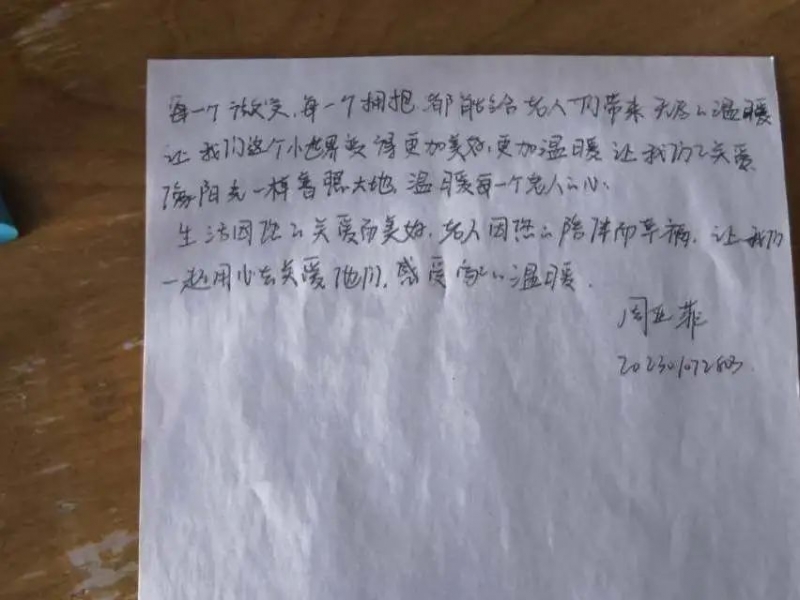 每一个微笑,每一个拥抱,都能给老人们带来无尽的温暖
让我们这个小世界变得更加美好,更加温暖,让我们的关爱
像阳光一样普照大地,温暖每一个老人的心。
生活因您的关爱而美好,老人因您的陪伴而幸福,让我们
一起用心去关爱他们,感受家的温暖。
周亚菲